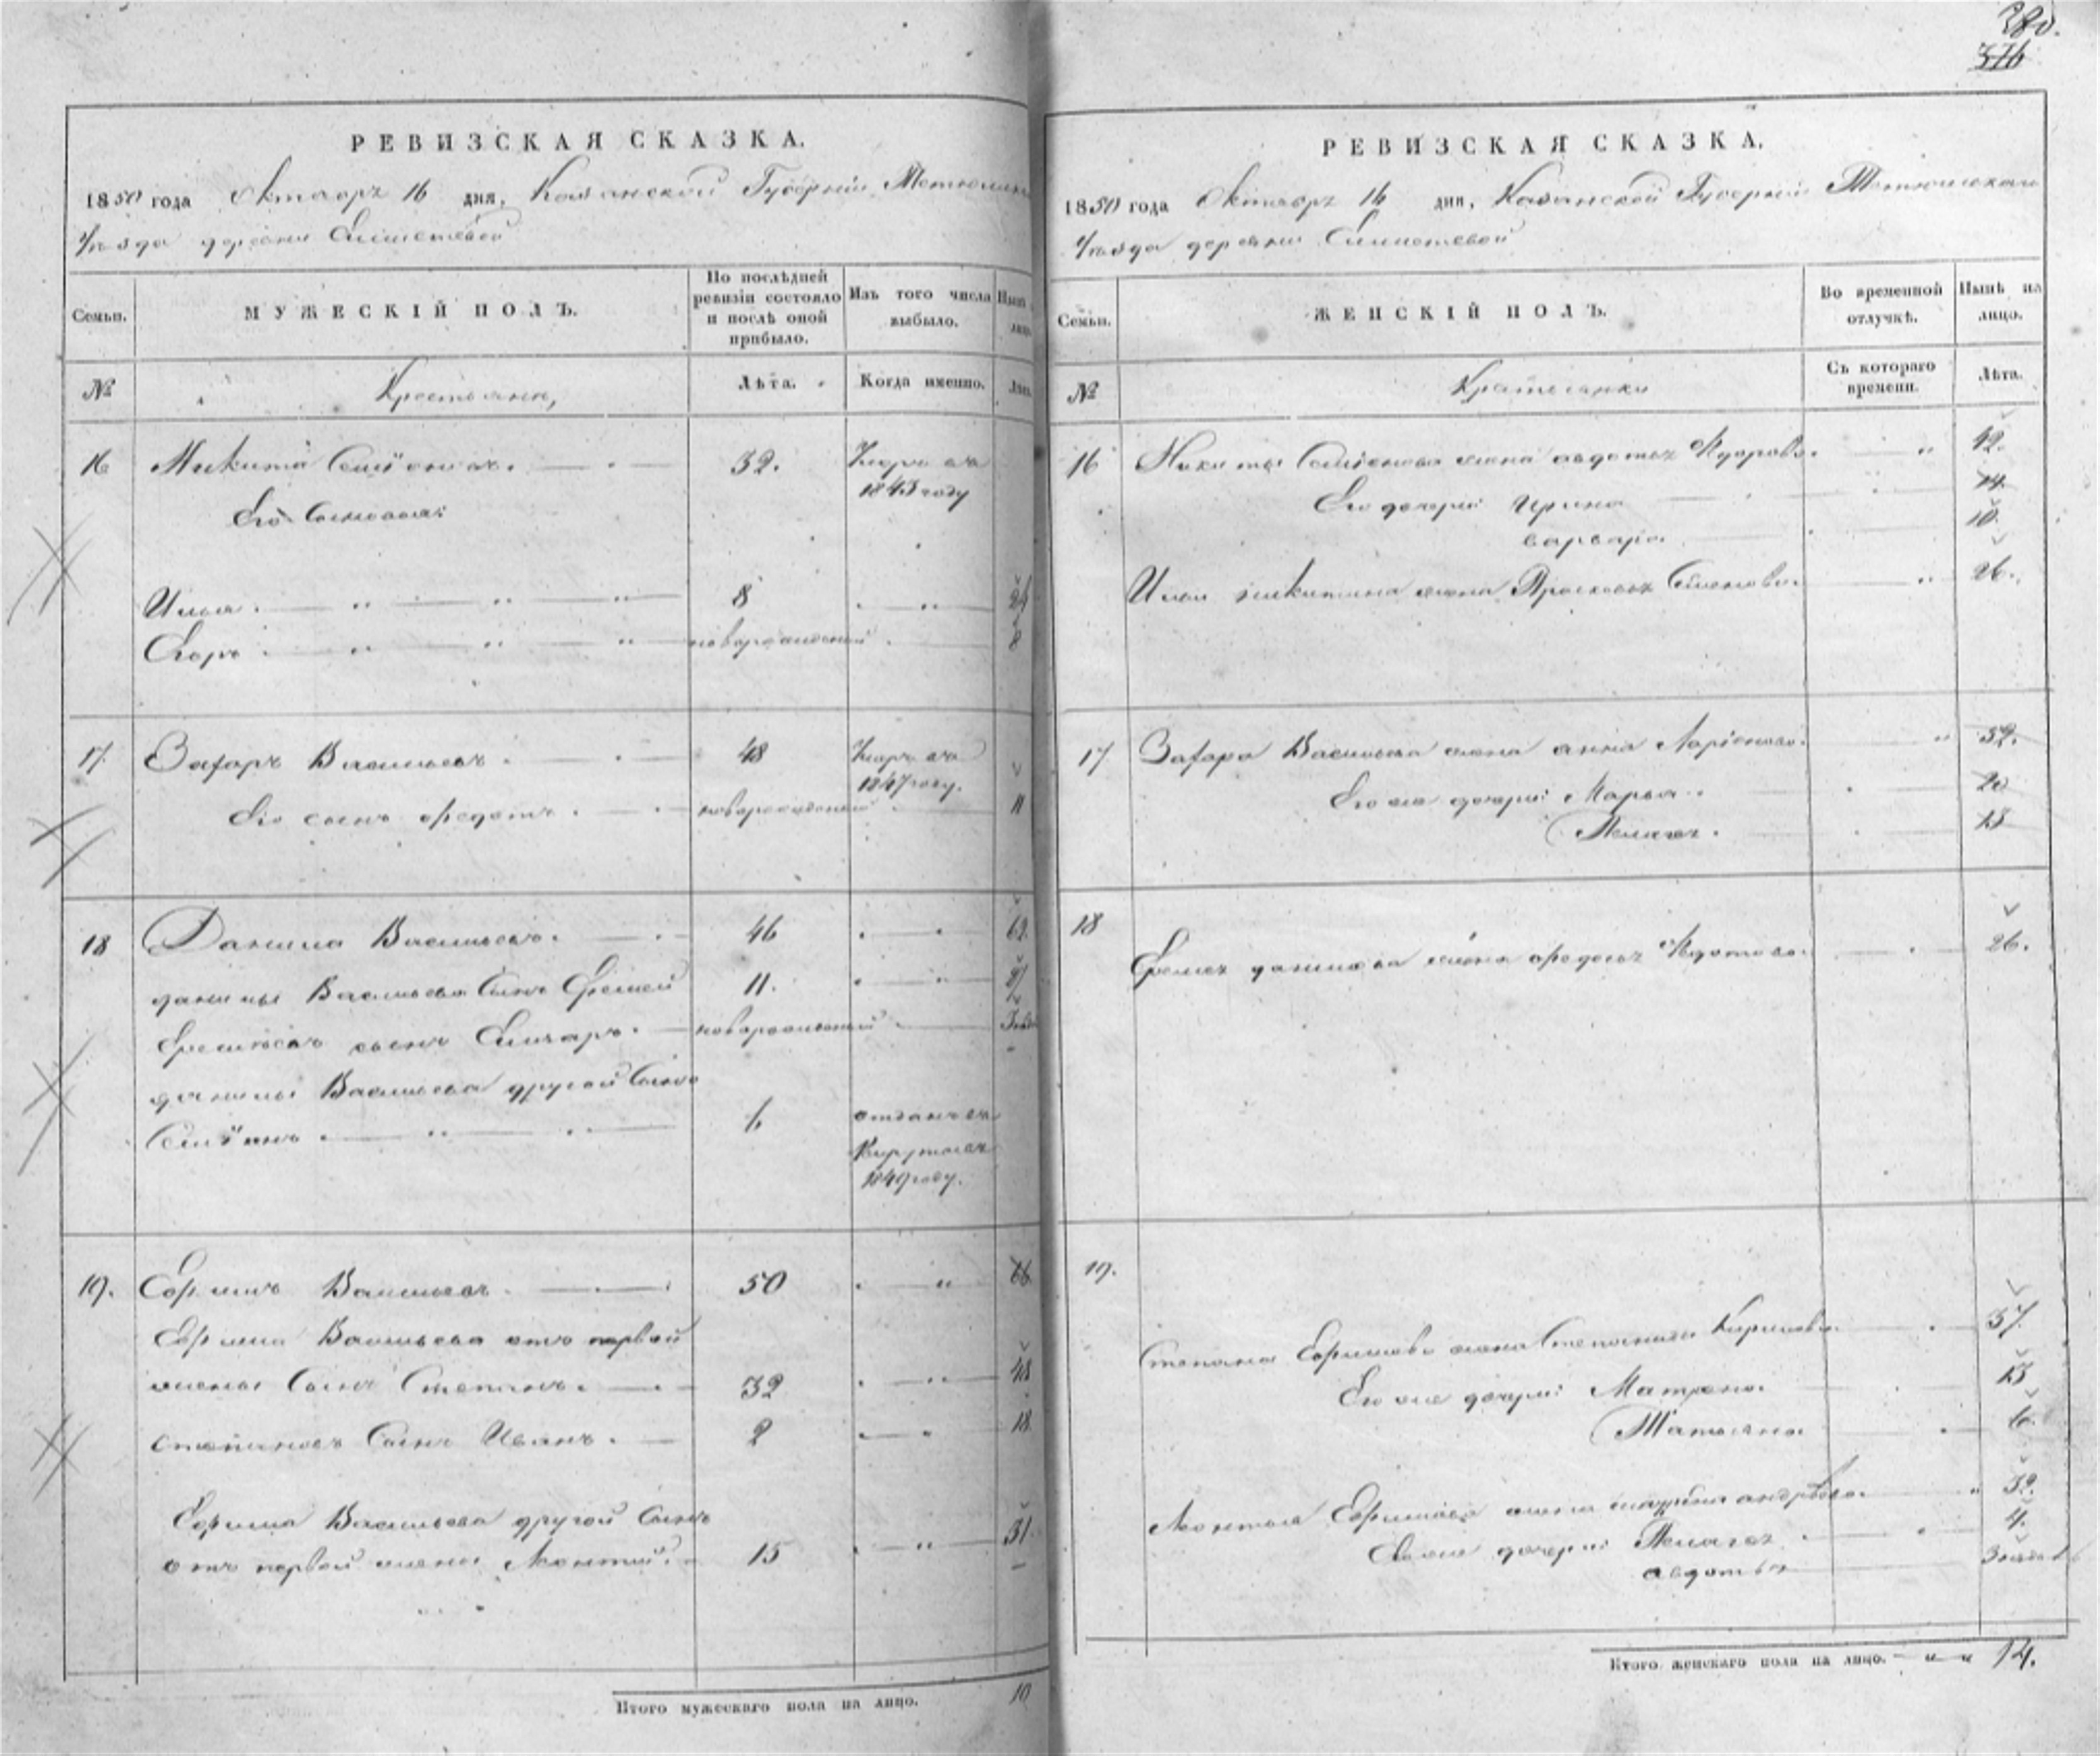 380.
376
РЕВИЗСКАЯ СКАЗКА.
1850 года Октября 16 дня, Казанской Губерніи
уѣзда деревни
Семьи.
МУЖЕСКІЙ ПОЛЪ.
По послѣдней ревизіи состояло и послѣ оной прибыло.
Изъ того числа выбыло.
№
Крестьяне,
Лѣта.
Когда именно.
Лѣта.
16 Микита Семіоновъ. 32.
1843 году
Его сыновья:
Илья. 8 24
Егоръ новорожденный 8
17. Захаръ Васильевъ. 48
1847 году.
Его сынъ Федотъ. новорожденный 11
18 Данила Васильевъ. 46 62.
Данилы Васильева сынъ Еремей 11. 27
Еремѣевъ сынъ новорожденный
Данилы Васильева другой сынъ
Семіонъ 6 отданъ въ
рекруты въ
1849 году.
19. Ефимъ Васильевъ. 50 66
Ефима Васильева отъ первой
жены сынъ Степанъ. 32 48
Степановъ сынъ Иванъ. 2 18
Ефима Васильева другой сынъ
отъ первой жены Леонтій. 15 31
Итого мужескаго пола на лицо. 10
РЕВИЗСКАЯ СКАЗКА.
1850 года Октября 16 дня, Казанской Губерніи
уѣзда деревни
Семьи.
ЖЕНСКІЙ ПОЛЪ.
Во временной отлучкѣ.
Нынѣ на лицо.
№
Крестьянки
Съ котораго времени.
Лѣта.
16 Никиты Семіонова жена Авдотья 42.
Его дочери Ирина 14.
Варвара 10.
Ильи Микитина жена Прасковья Семенова. 26.
17 Захара Васильева жена Анна Ларіонова. 52.
Его же дочери: Марья. 20
Пелагея. 13
18
Еремея Данилова жена Федосья 26.
19.
Степана Ефимова жена Степанида Кирилова. 37.
Его же дочери: Матрена. 13
Татьяна 6.
Леонтья Ефимова жена Андрѣева. 32.
Его же дочери: Пелагея 4.
Авдотья
Итого женскаго пола на лицо. 14.